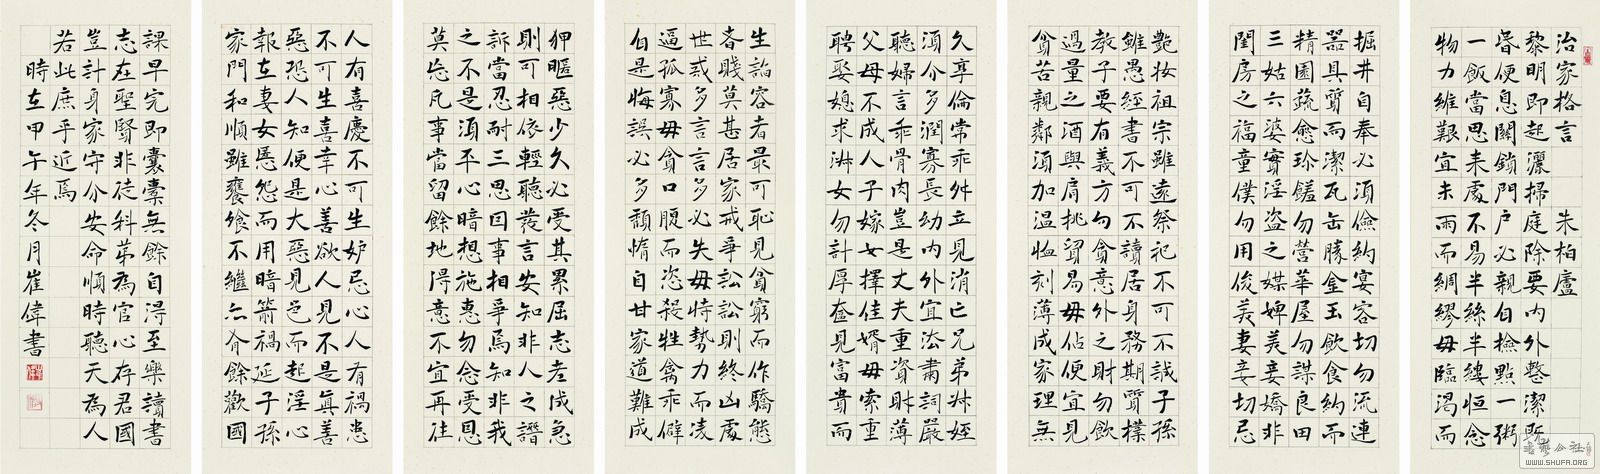 治家格言 朱柏廬
黎明即起灑掃庭除要内外整潔既
昏便息關鎖門户必親自檢點一粥
一飯當思来處不易半絲半縷恒念
物力維艱宜未雨而綢繆毋臨渴而
掘井自奉必須儉約宴容切勿流連
器具質而潔瓦缶勝金玉飲食約而
精園蔬愈珍饈勿營華屋勿謀良田
三姑六婆實淫盗之媒婢美妾嬌非
閨房之福童僕勿用俊美妻妾切忌
艷妝祖宗雖遠祭祀不可不誠子孫
雖愚經書不可不讀居身務期質樸
教子要有義方勿貪意外之財勿飲
過量之酒與肩挑貿易毋佔便宜見
貧苦親鄰須加温恤刻薄成家理無
久享倫常乖舛立見消亡兄弟叔姪
須分多潤寡長幼内外宜法肅詞嚴
聽婦言乖骨肉豈是丈夫重資財薄
父母不成人子嫁女擇佳婿毋索重
聘娶媳求淑女勿計厚奩見富貴而
生諂容者最可恥見貧窮而作驕態
者賤莫甚居家戒爭訟訟則終凶處
世或多言言多必失毋恃勢力而凌
逼孤寡毋貪口腹而恣殺牲禽乖僻
自是悔誤必多頽惰自甘家道難成
狎暱惡少久必受其累屈志老成急
則可相依輕聽發言安知非人之譖
訴當忍耐三思因事相爭焉知非我
之不是須平心暗想施惠勿念受恩
莫忘凡事當留餘地得意不宜再往
人有喜慶不可生妒忌心人有禍患
不可生喜幸心善欲人見不是真善
惡恐人知便是大惡見色而起淫心
報在妻女匿怨而用暗箭禍延子孫
家門和順雖饔飧不繼亦有餘歡國
課早完即囊橐無餘自得至樂讀書
志在聖賢非徒科第為官心存君國
豈計身家守分安命順時聽天為人
若此庶乎近焉
時在甲午年冬月崔偉書
www.SHUFA.ORG